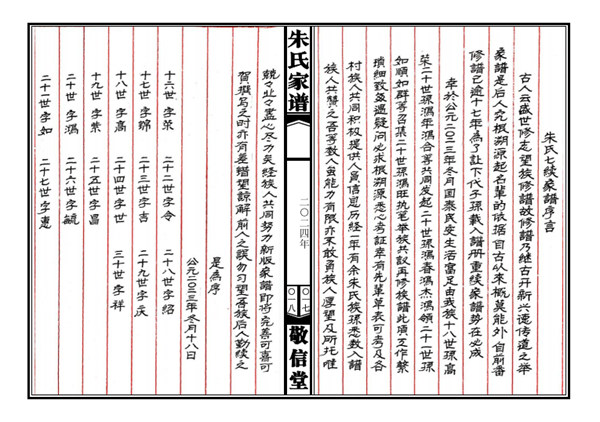 朱氏七续家谱序言
古人云盛世修志望族修谱故修谱乃继古开新兴德传道之举
家谱是后人究根溯源起名辈的依据自古以来概莫能外自前番
修谱已逾十七年为了让下代子孙载入谱册重续家谱势在必成
幸於公元二0二三年冬月国泰民安生活富足由我族十八世孙高
荣二十世孙鸿年鸿合等共同发起二十世孙鸿春鸿杰鸿领二十一世孙
如顺如群等召集二十世孙鸿旺执笔举族共议再修族谱此项工作繁
琐细致每遇疑问必求根溯源悉心考証幸有先辈草单表可考及各
村族人共同积极提供人员信息历经一年有余朱氏族孙悉数入谱
族人共赞之吾等数人虽能力有限亦不敢负族人厚望及所托唯
朱氏家谱
二〇二四年
〇一七
〇一八
敬信堂
兢々业々尽心尽力英经族人共同努力新版家谱即将完善可喜可
贺撰写之时亦有差错望谅解前人之误勿习望吾族后人勤续之
是为序
公元二0二三年冬月十八日
十六世字荣 二十二世字令 二十八世字绍
十七世字锦 二十三世字吉 二十九世字庆
十八世字高 二十四世字世 三十世字祥
十九世字荣 二十五世字昌
二十世字鸿 二十六世字毓
二十一世字如 二十七世字惠